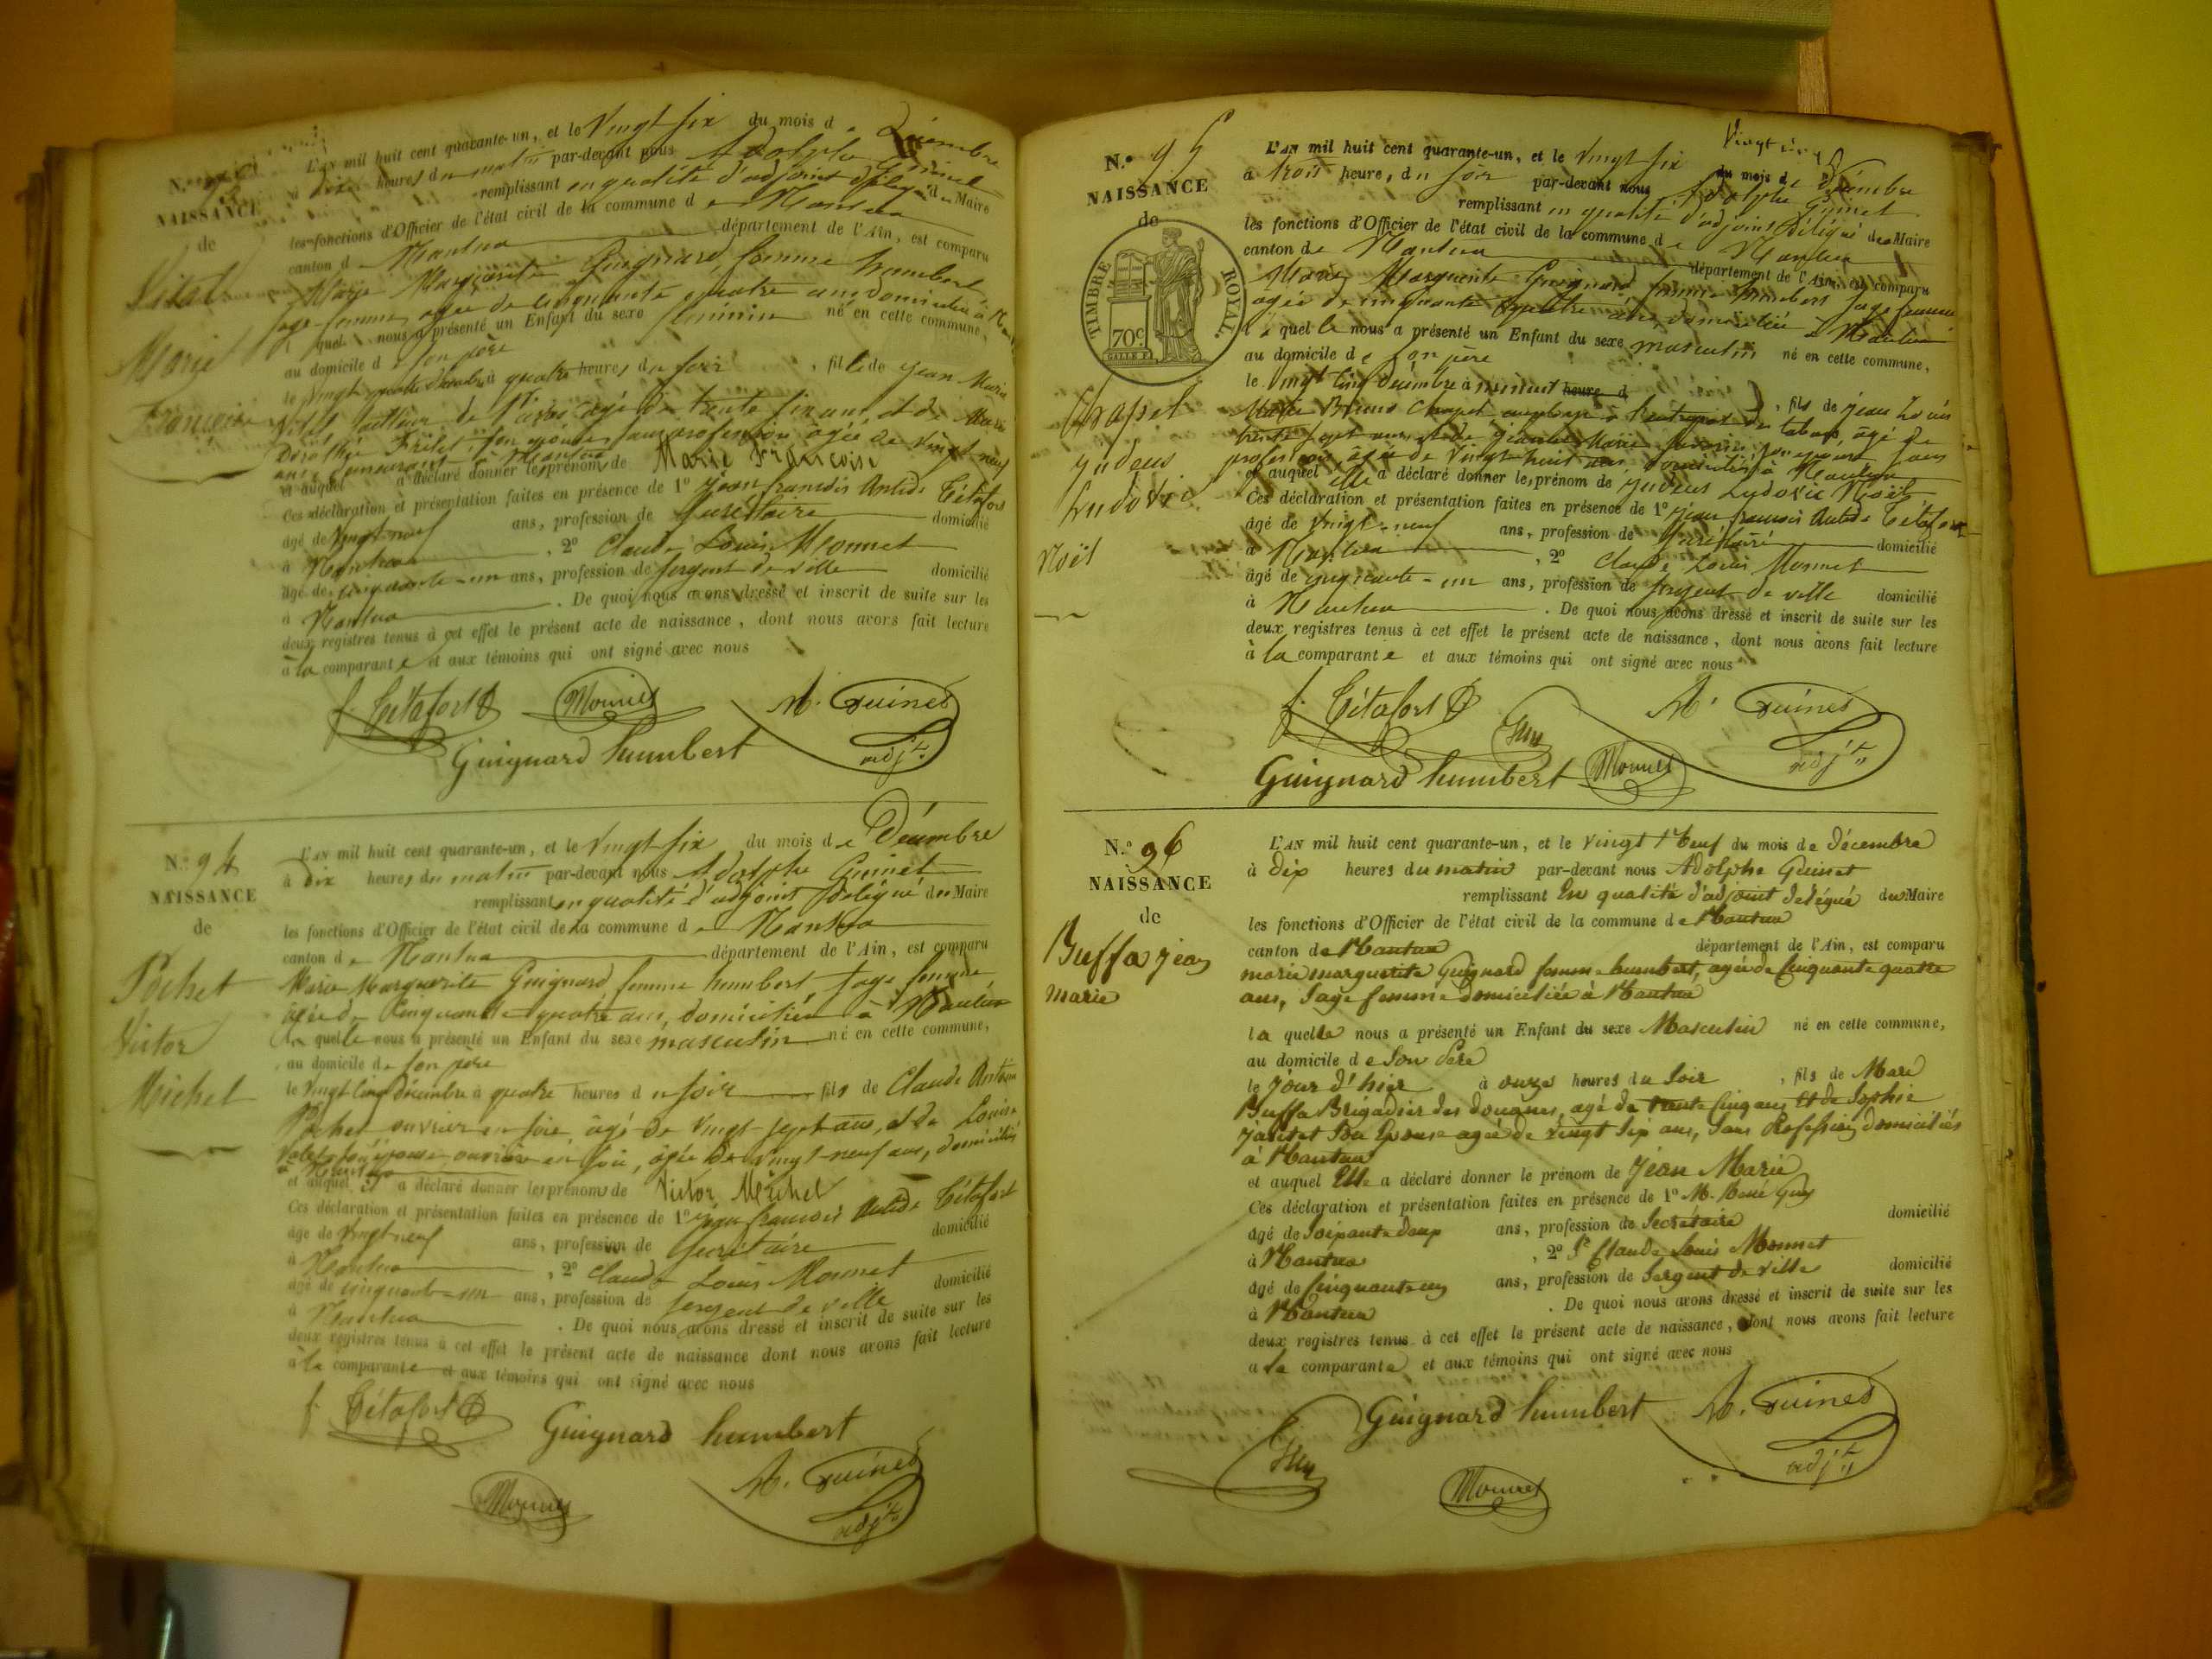 N.º 93
NAISSANCE
de
Vital
Marie
Françoise
L'AN mil huit cent quarante-un, et le Vingt six du mois de Décembre
à dix heures du matin par-devant nous Adolphe Guinet
remplissant en qualité d'adjoint délégué du Maire
les fonctions d'Officier de l'état civil de la commune de Nantua
canton de Nantua département de l'Ain, est comparu
Marie Marguerite Guignard femme humbert
sage-femme, agée de cinquante quatre ans domiciliée à
quelle nous a présenté un Enfant du sexe féminin né en cette commune,
au domicile de son père
le vingt quatre décembre à quatre heures du soir, fille de Jean Marie
Vital tailleur de âgé de trente six ans, et de Marie
Dorothée son épouse, sans profession âgée de vingt neuf
ans demeurant à Nantua
et auquel a déclaré donner les prénoms de Marie Françoise
Ces déclaration et présentation faites en présence de 1º jean françois Antide Tétafort
âgé de vingt-neuf ans, profession de Secrétaire domicilié
à Nantua, 2º Claude Louis Monnet
âgé de cinquante-un ans, profession de sergent de ville domicilié
à Nantua. De quoi nous avons dressé et inscrit de suite sur les
deux registres tenus à cet effet le présent acte de naissance, dont nous avons fait lecture
à la comparante et aux témoins qui ont signé avec nous
f. Tétafort Monnet A. Guinet
Guignard humbert adj.t
N.º 94
NAISSANCE
de
Pochet
Victor
Michel
L'AN mil huit cent quarante-un, et le Vingt six du mois de Décembre
à dix heures du matin par-devant nous Adolphe Guinet
remplissant en qualité d'adjoint délégué du Maire
les fonctions d'Officier de l'état civil de la commune de Nantua
canton de Nantua département de l'Ain, est comparu
Marie Marguerite Guignard femme humbert, sage femme
âgée de Cinquante quatre ans, domiciliée à Nantua
la quelle nous a présenté un Enfant du sexe masculin né en cette commune,
au domicile de son père
le vingt cinq décembre à quatre heures du soir fils de Claude Antoine
Pochet ouvrier en soie, âgé de vingt-sept ans, et de Louise
son épouse ouvrière en soie, âgée de vingt-neuf ans, domiciliés
à Nantua
et auquel il a déclaré donner les prénoms de Victor Michel
Ces déclaration et présentation faites en présence de 1º jean françois Antide Tétafort
âgé de vingt-neuf ans, profession de Secrétaire domicilié
à Nantua, 2º Claude Louis Monnet
âgé de cinquante-un ans, profession de sergent de ville domicilié
à Nantua. De quoi nous avons dressé et inscrit de suite sur les
deux registres tenus à cet effet le présent acte de naissance dont nous avons fait lecture
à la comparante et aux témoins qui ont signé avec nous
f. Tétafort Guignard humbert
Monnet A. Guinet
adj.t
N.º 95
NAISSANCE
de
TIMBRE ROYAL.
70c
Chapel
Ludovic
Noël
L'AN mil huit cent quarante-un, et le Vingt six du mois de Décembre
à trois heure, du soir par-devant nous Adolphe Guinet
remplissant en qualité d'adjoint délégué du Maire
les fonctions d'Officier de l'état civil de la commune de Nantua
canton de Nantua département de l'Ain, est comparu
Marie Marguerite Guignard femme humbert sage femme
agée de cinquante quatre ans, domiciliée à Nantua
la quelle nous a présenté un Enfant du sexe masculin né en cette commune,
au domicile de son père
le vingt cinq décembre à minuit heure d, fils de jean Louis
Bruno Chapel employé à l'entrepôt des tabacs, âgé de
trente sept ans, et de Marie son épouse sans
profession, âgée de vingt huit ans domiciliés à Nantua
et auquel elle a déclaré donner le prénom de Ludovic Noël
Ces déclaration et présentation faites en présence de 1º jean françois Antide Tétafort
âgé de vingt-neuf ans, profession de Secrétaire domicilié
à Nantua, 2º Claude Louis Monnet
âgé de cinquante-un ans, profession de sergent de ville domicilié
à Nantua. De quoi nous avons dressé et inscrit de suite sur les
deux registres tenus à cet effet le présent acte de naissance, dont nous avons fait lecture
à la comparante et aux témoins qui ont signé avec nous
f. Tétafort A. Guinet
Guignard humbert Monnet adj.t
N.º 96
NAISSANCE
de
Buffa jean
marie
L'AN mil huit cent quarante-un, et le vingt Neuf du mois de décembre
à Dix heures du matin par-devant nous Adolphe Guinet
remplissant En qualité d'adjoint délégué du Maire
les fonctions d'Officier de l'état civil de la commune de Nantua
canton de Nantua département de l'Ain, est comparu
marie marguerite Guignard femme humbert, agée de Cinquante quatre
ans, Sage femme domiciliée à Nantua
la quelle nous a présenté un Enfant du sexe Masculin né en cette commune,
au domicile de Son Père
le Jour d'hier à onze heures du Soir, fils de Marc
Buffa Brigadier des douanes, agé de trente Cinq ans, Et de Sophie
Son Epouse agée de vingt Six ans, Sans Profession domiciliés
à Nantua
et auquel Elle a déclaré donner le prénom de Jean Marie
Ces déclaration et présentation faites en présence de 1º M. René Guy
âgé de Soixante deux ans, profession de Secrétaire domicilié
à Nantua, 2º Sr Claude Louis Monnet
âgé de Cinquante un ans, profession de Sergent de ville domicilié
à Nantua. De quoi nous avons dressé et inscrit de suite sur les
deux registres tenus à cet effet le présent acte de naissance, dont nous avons fait lecture
a la comparante et aux témoins qui ont signé avec nous
Guignard humbert A. Guinet
Monnet adj.t